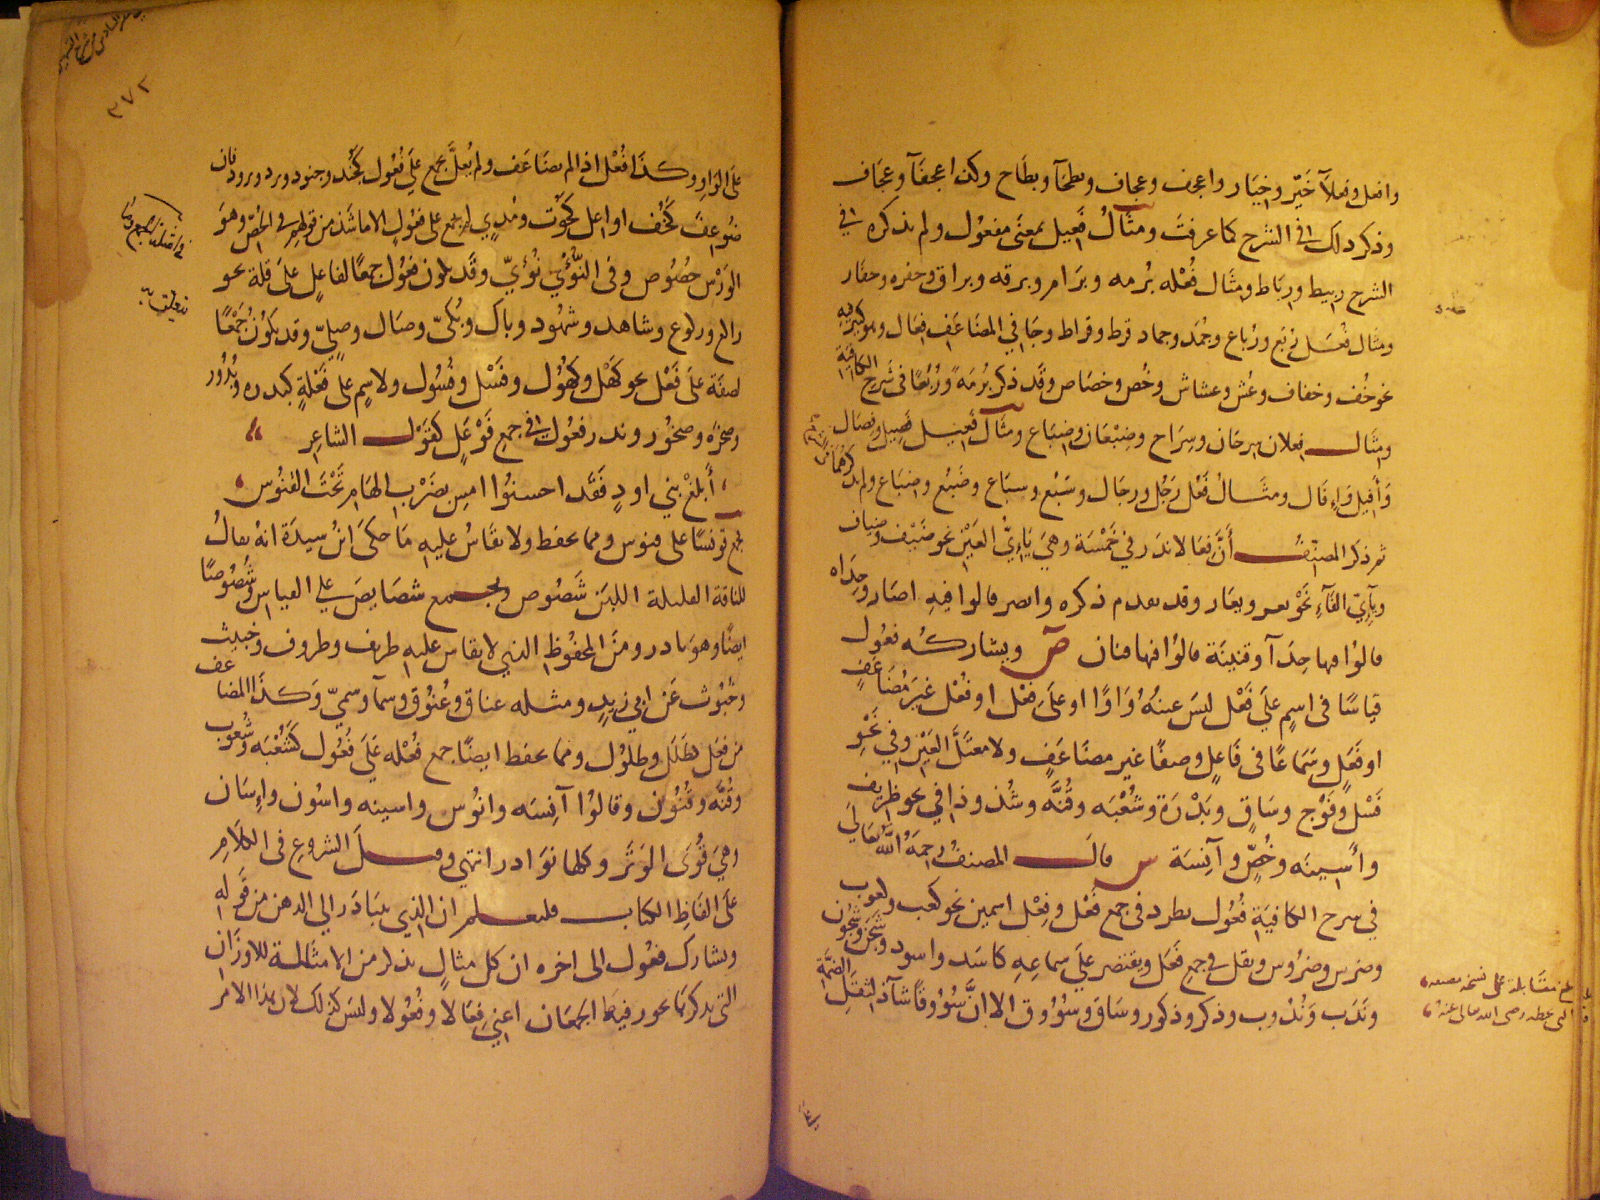 وافعل وفعلا خَيّر وخِيَار واعجف وعجاف وبطحآ وبطَاح وكذا عجفآ وعجَاف
وذكر ذلك في الشرح كما عرفتَ ومثَالُ فَعيل بمعنَى مفعُول ولم يذكره في
الشرح ربيط ورِبَاط ومثَال فُعْله بُرمه وبرَامر وبرقه وبراق وحفره وحفَار
ومثَال فُعْل رُبَع ورِبَاع وجُمْد وجماد قرط وقراط وجَا في المضَاعَف فعَال وهو كثير
نحو خُف وخفاف وعُش وعشاش وخُص وخصَاص وقَد ذكر بُرمَةً ورُبعًا في شَرح الكافية
ومثَال فعلان سِرحَان وسِرَاح وضِبْعَان وضِبَاع ومثَال فَعيل فَصِيل وفِصَال
وَأفِيل وَإِفَال ومثَال فَعُل رَجُل ورجَال وسَبُع وسبَاع وضَبُع وضِبَاع ولم يذكرهما
ثم ذكر المصنف أنَّ فِعَالا ندَر في خَمْسَة وهيَ يَاءِيُّ العَيْن نحو ضَيْف وضِيَاف
ويَآءِيّ الفَآءِ نَحْو يعر ويعَار وقد تقدم ذكره وايصر قالوا فيه اصَار وحِدَاه
قالوا فيها حِدَآ وقنينَة قالوُا فيها قنان ص ويشاركه فعُول
قياسًا في اسمٍ علَى فَعْل ليسَ عينهُ وَاوًا او علَى فِعْل او فُعْل غيرَ مُضَاعَف
او فَعَل وسَمَاعًا في فَاعلٍ وصفًا غير مضَاعَفٍ ولا معتَلِّ العَيْن وفي نَحْو
فَسْل وفَوْج وسَاقٍ وبَدْرَة وشُعْبَه وقُنَّه وشذ وذا في نحو ظَريف
وأسِينَه وخُصٍّ وآنِسَة س قال المصنفُ رحمَهُ الله تعَالَى
في شرح الكافيَة فُعُول يطرد في جمع فَعْل وفِعْل اسمين نحو كَعْب وكعوب
وضرس وضرُوس ويقل في جمع فَعَل ويقتصر علَى سماعه كاسَد واسود وشَجَن وشجُون
ونَدَب ونُدُوب وذكر وذكور وسَاق وسُوُوق الا انَّ سُوُوقًا شآذ لثقل الضمَّة
علَى الوَاوِ وكذَا فُعْل اذا لم يضَاعَف ولم يُعلَّ يجمع علَى فُعُول كَجُند وجنود وبرد وبرود فان
ضُوعِفَ كَخُف او اعل كحُوت ومُدي لم يجمع على فعُولٍ الا ما شذ من قولهم في الحُصّ وهوَ
الوَرْس حصُوص وفي النُّؤْي نُؤيّ وقَد يكون فعُول جمعًا لفاعلٍ علَى قلة نحو
راكع وركوع وشاهد وشهُود وباك وبُكىّ وصَال وصِليّ وقد يكوُن جَمْعًا
لصفَة علَى فَعْل نحو كهْل وكهُول وفَسْل وفسُول ولاسمٍ على فَعْلةٍ كبدره وبُدُور
وصخرَه وصخُور وندر فعُول في جمع فَوْعَلٍ كقوْل الشاعِر
أبلغْ بَني اودٍ فَقَد احسنوُا امس بضَرْب الهَامِ تَحْتَ القُنُوس
جمَع قونسًا على قنوس ومما يحفظ ولا يقَاسُ عليهِ مَا حكَى ابْنُ سيدَة انهُ يقالُ
للنَاقة القليلة اللبَن شَصُوص ويجمع شصَايصَ على القياس وشُصُوصًا
ايضًا وهو نادر ومنَ المحفُوظ الذي لا يقاس عليهِ ظريف وظروف وخبيث
وخُبُوث عَن ابي زيدٍ ومثله عنَاق وعُنُوق وسمآ وسميّ وَكذَا المضاعف
من فعَل كطَلَل وطلُول ومما يحفظ ايضًا جمع فُعْله علَى فُعُول كَشُعْبَه وشعُوب
وقُنَّه وقُنُون وقالوُا آنِسَه وانُوس واسينه واسُون واِسَان
وهيَ قُوَى الوَتَر وكلها نوَادر انتهى وقبلَ الشروع في الكلامِ
علَى الفَاظِ الكتاب فليعلم ان الذي يتبَادَر الى الذهن من قوله
ويشارك فعُول الى اخره ان كل مثالٍ يذكر من الامثلة للاوزَان
التي يذكرهَا نحو رفيهَا الجمعَان اعني فِعَالاً وفُعُولا وليسَ كذلك لان هذا الامر
٣٧٢
بلغ مقَابلة على نسخة مصنفه
التي بخطه رضي الله تعالى عنهُ